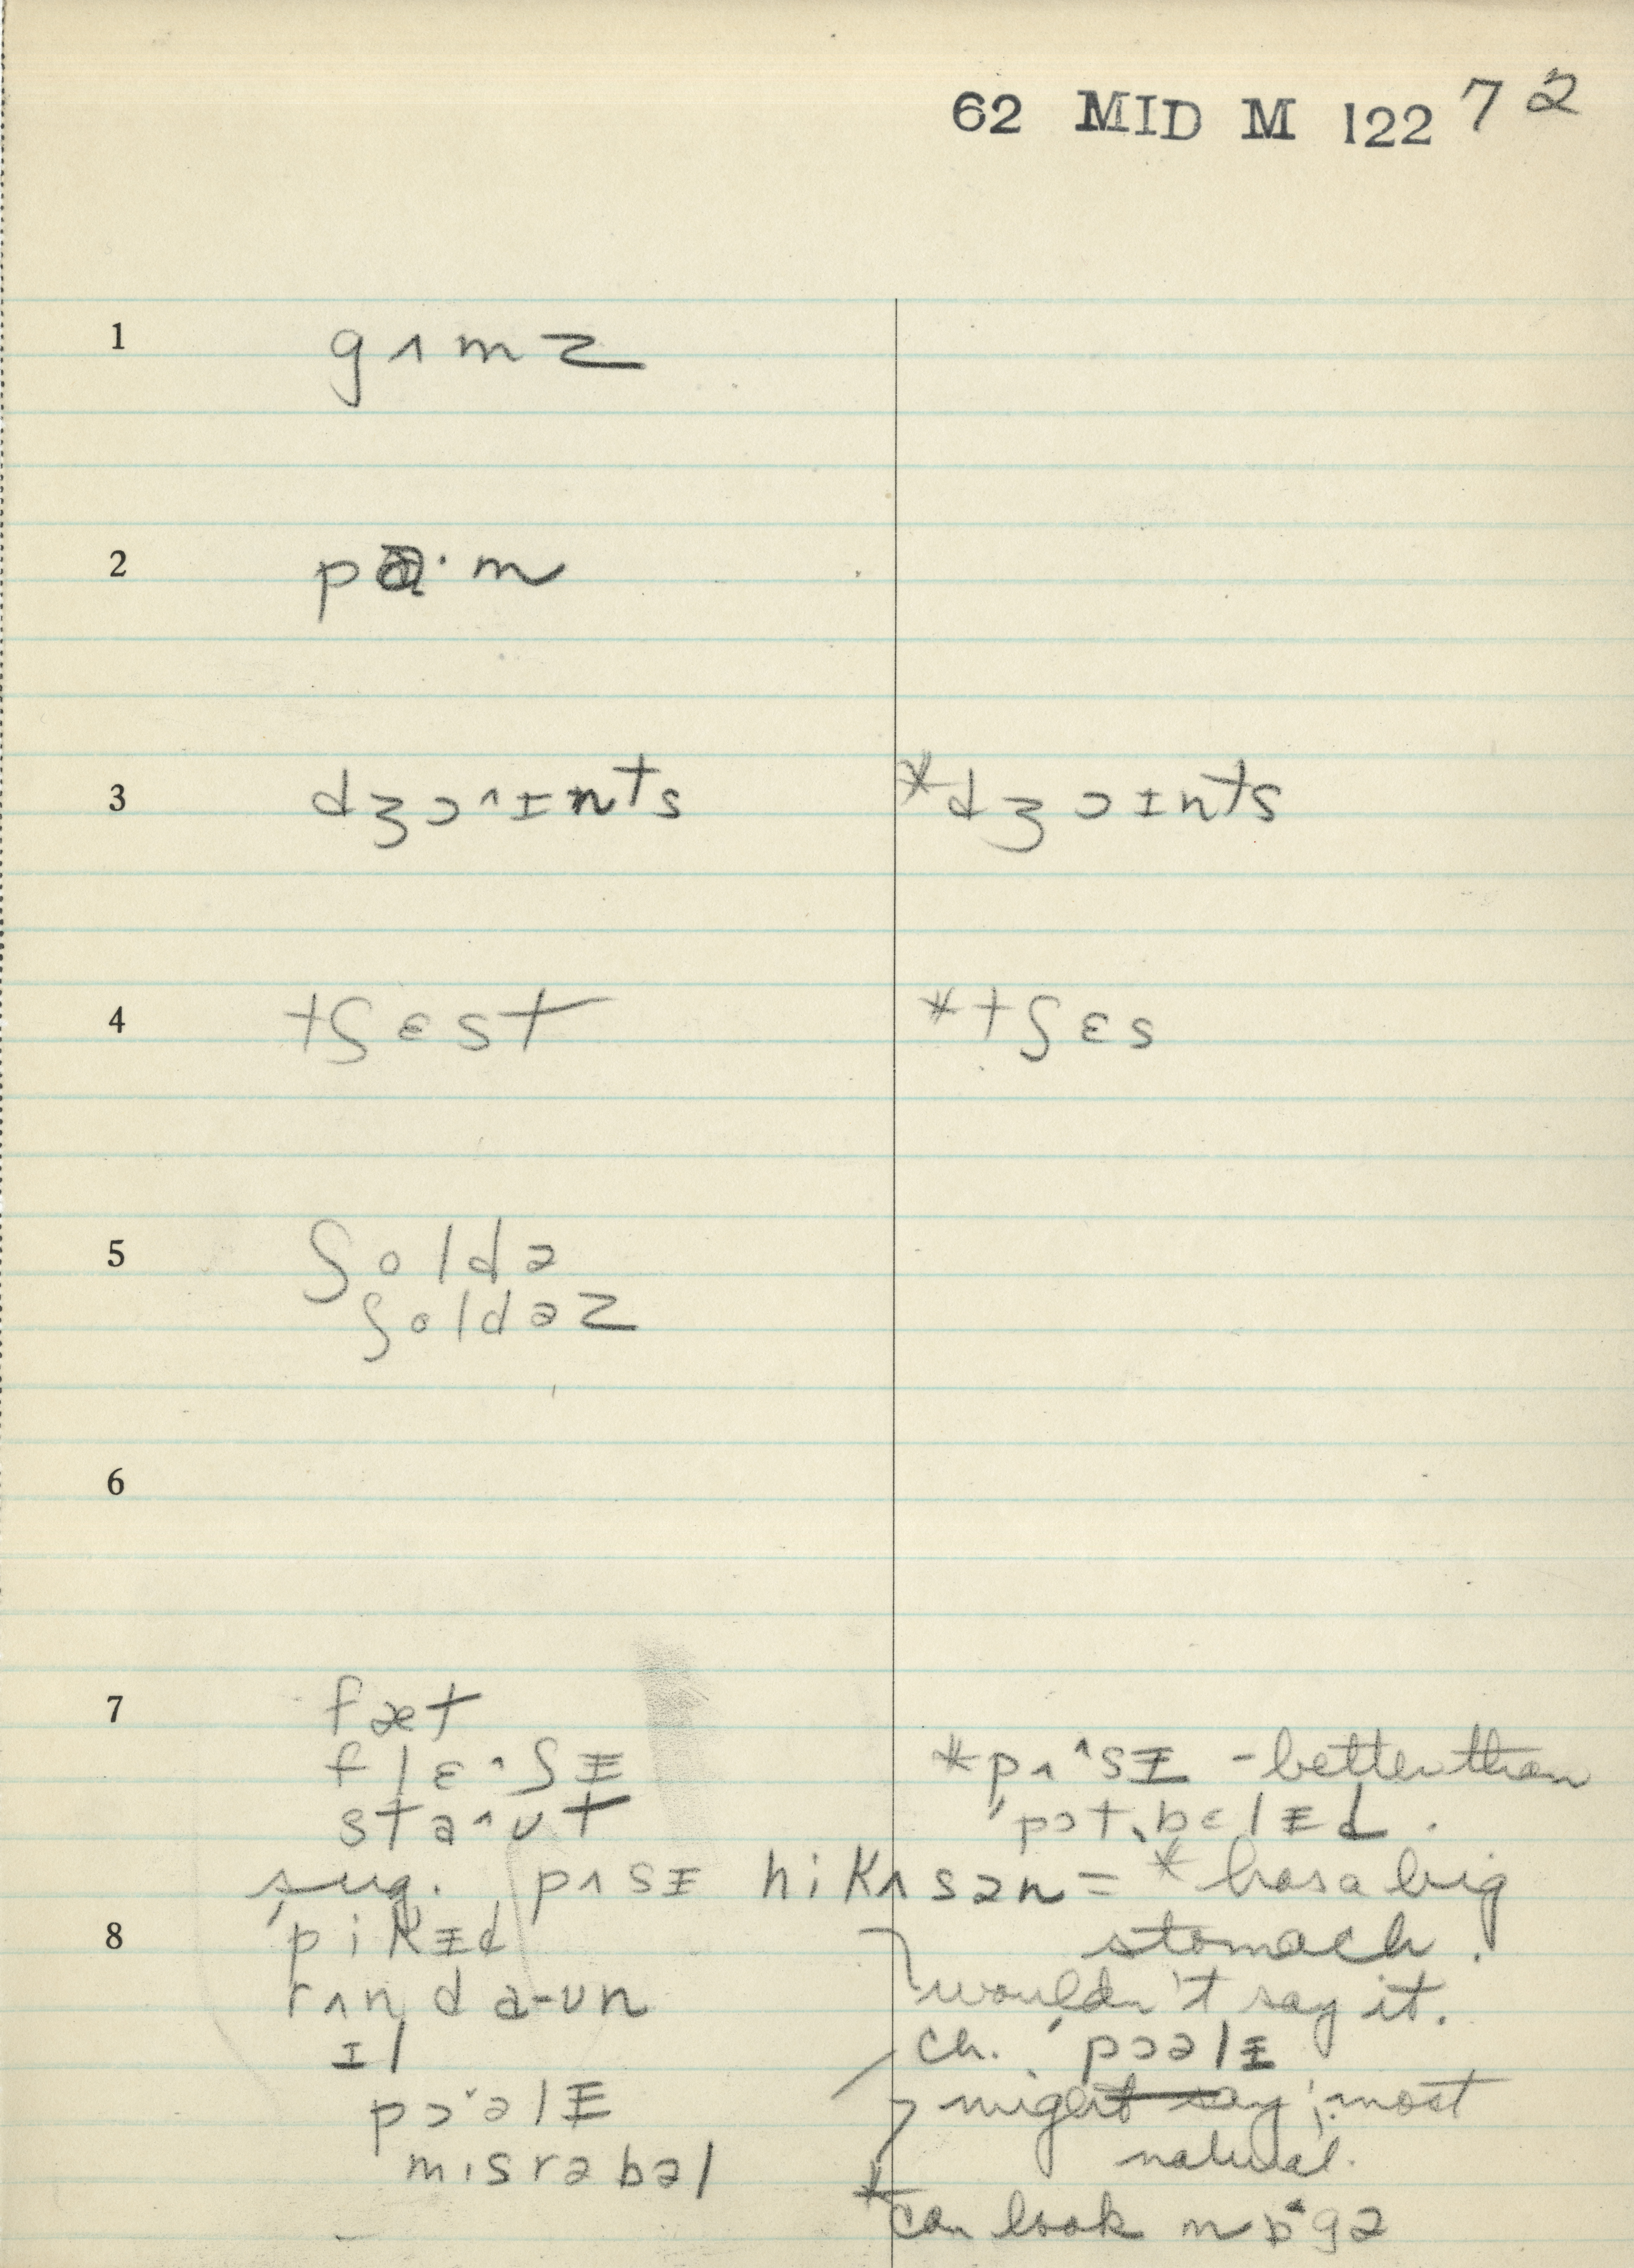 62 MID M 122 72
1 gʌmz
2 pɑ·m
3 dʒɔ^ɪnts *dʒɔɪnts
4 tʃɛst *tʃɛs
5 ʃoldə
ʃoldəz
6
7 fæt
flɛ^ʃɪ̵ *pʌ^sɪ̵ - better than
sta^ut ˈpɔtˌbɛlɪ̵d.
sug. pʌsɪ̵ hikʌsən = *has a big
stomach.
8 ˈpikɪ̵d
rʌn da-ʊn wouldn't say it.
ɪl ch. ˈpɔəlɪ̵
pɔ^əlɪ̵ might say; most
natural.
mɪsrəbəl
*can look